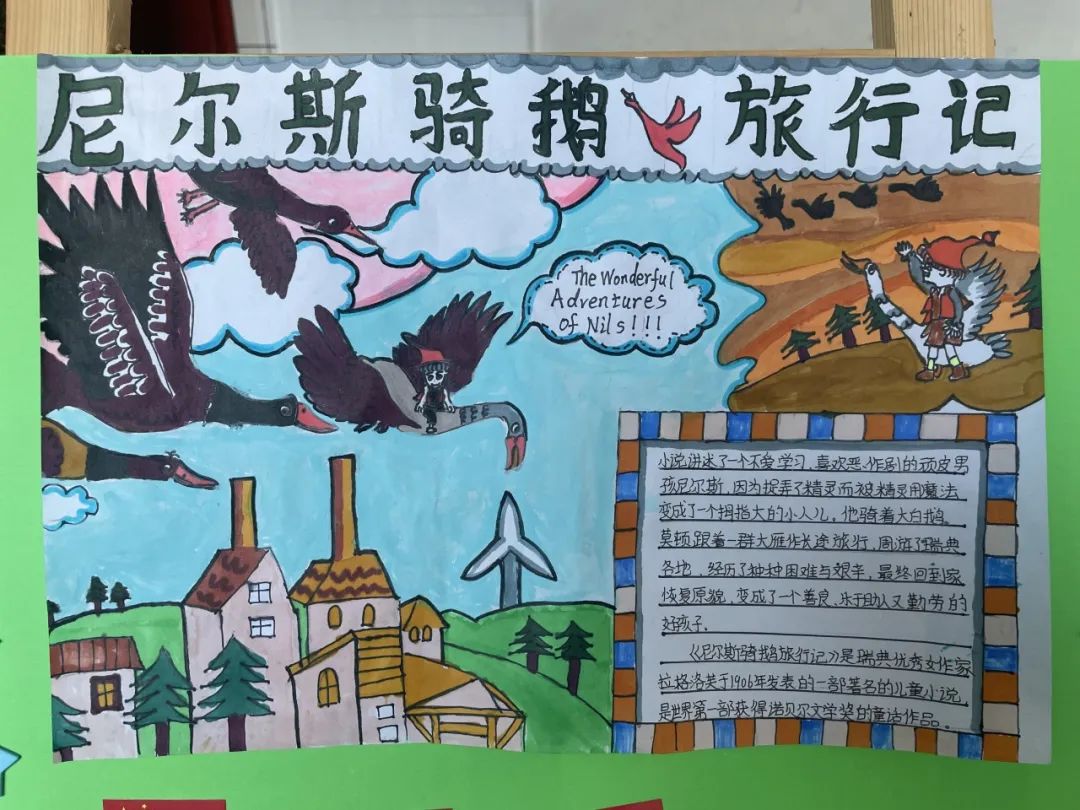 尼尔斯骑鹅旅行记
The Wonderful
Adventures
Of Nils!!!
小说讲述了一个不爱学习、喜欢恶作剧的顽皮男
孩尼尔斯,因为捉弄了精灵而被精灵用魔法
变成了一个拇指大的小人儿。他骑着大白鹅
莫顿跟着一群大雁作长途旅行,周游了瑞典
各地,经历了种种困难与艰辛,最终回到家
恢复原貌,变成了一个善良、乐于助人又勤劳的
好孩子.
《尼尔斯骑鹅旅行记》是瑞典优秀女作家
拉格洛芙于1906年发表的一部著名的儿童小说,
是世界第一部获得诺贝尔文学奖的童话作品.